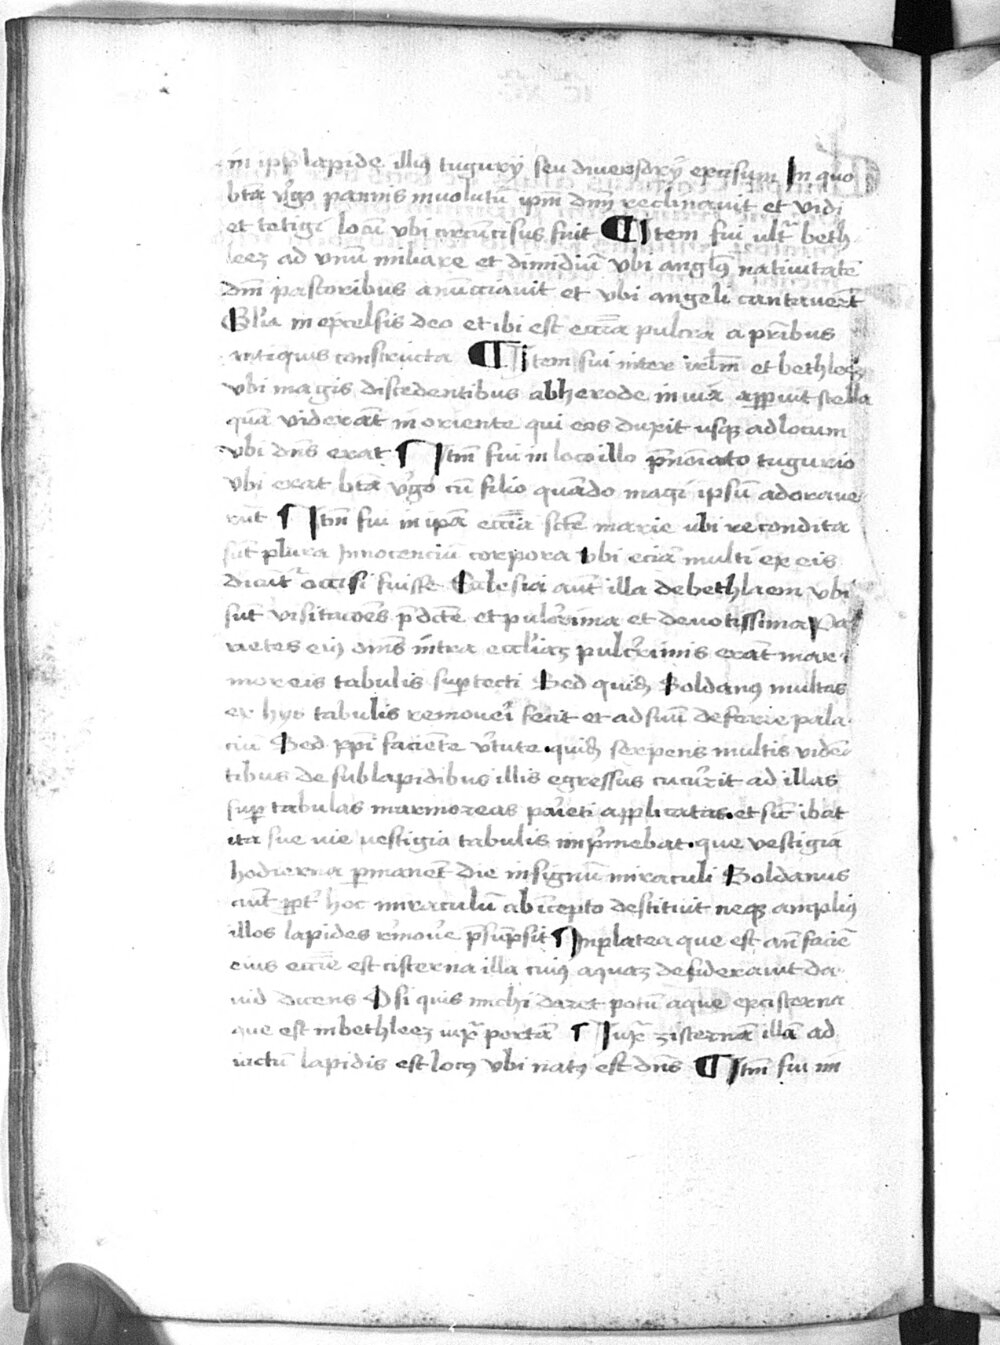 in ip̄o lapide illiꝰ tugurij seu diuersorij excisum In quo
bt̄a v̓go pannis inuolutū ip̄m dn̄m reclinauit et vidi
et tetigi locū vbi circūcisus fuit ¶ Item fui ult᷑ beth
leeꝫ ad vnū miliare et dimidiū vbi anglꝰ natiuitatē
dn̄i pastoribus anūcciauit et vbi angeli cantauer̄t
Gl̓ia in excelsis deo et ibi est eccīa pulcra a pr̄ibus
antiquis constructa ¶ Item fui inter irl̄m et bethleeꝫ
vbi magis discedentibus ab herode in via apꝑuit stella
quā viderāt in oriente qui eos duxit usqꝫ ad locum
vbi dn̄s erat ¶ Itm̄ fui in loco illo p̄noīato tugurio
vbi erat bt̄a v̓go cū filio quādo magi ipsū adoraue
rūt ¶ Itm̄ fui in ip̄a eccīa sc̄te marie ubi recondita
sūt plura Innocenciū corpora Vbi eciā multi ex eis
dicūt᷑ occisi fuisse Eclesia aūt illa de bethlaem vbi
sūt visitac̄oēs p̄dc̄te est pulc̓rima et deuotissima Pa
rietes eiꝰ om̄s intra eccl̓iaꝫ pulc̓rimis erāt mar
moreis tabulis suꝑtecti Sed quidā Soldanꝰ multas
ex hijs tabulis remoueri fecit et ad suū deferre pala
ciū Sed xp̄i faciente v̓tute quidā serpens multis viden
tibus de sub lapidibus illis egressus cucurrit ad illas
suꝑ tabulas marmoreas parieti applicatas et sic̄ ibat
ita sue vie vestigia tabulis imp̓mebat que vestigia
hodierna ꝑmanent die in signū miraculi Soldanus
aūt ꝓpt᷑ hoc miraculū ab īcepto destituit neqꝫ ampliꝰ
illos lapides r̓mou̓e p̄sūpsit ¶ In platea que est an̄ faciē
eius eccīe est cisterna illa cuiꝰ aquaꝫ desiderauit da
uid dicens O si quis michi daret potū aque ex cisterna
que est in bethleeꝫ iuxᷓ portā ¶ Iuxᷓ zisternā illā ad
iactū lapidis est locꝰ vbi natꝰ est dn̄s ¶ Itm̄ fui in